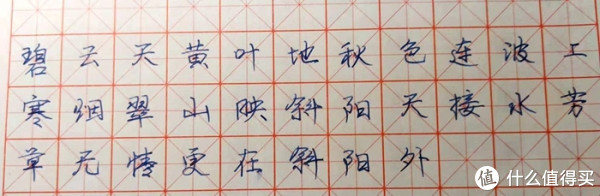 碧云天黄叶地秋色连波上
寒烟翠山映斜阳天接水芳
草无情更在斜阳外
值 什么值得买